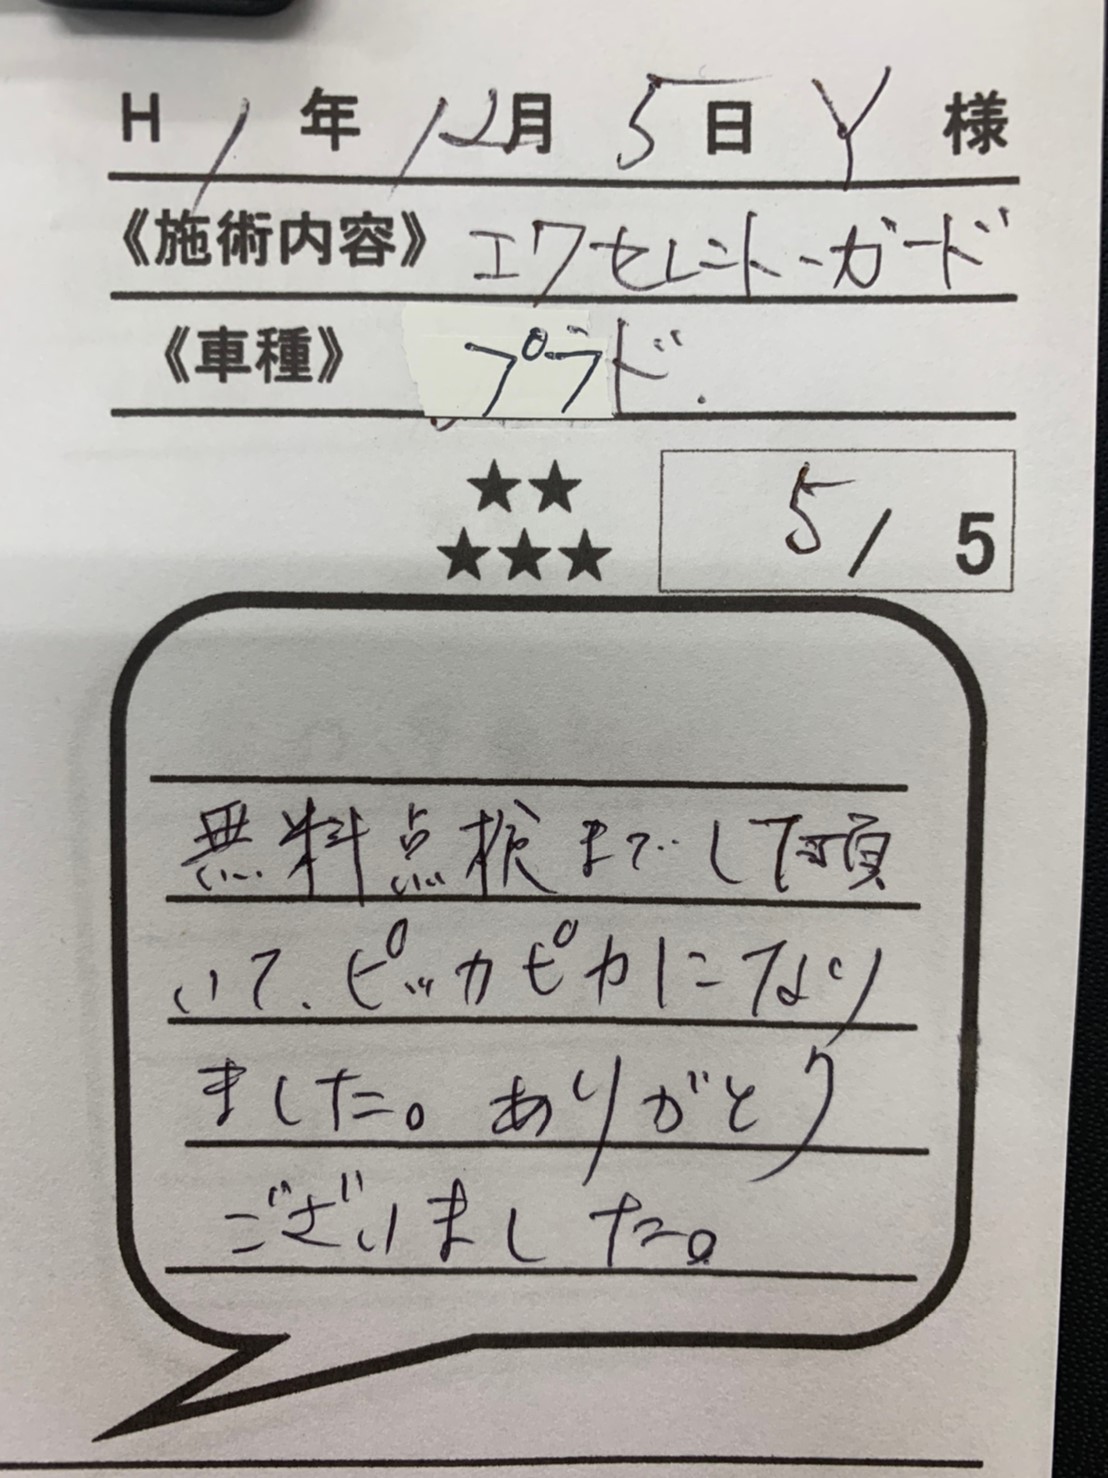 H 1 年 12月 5日 Y 様
《施術内容》 エクセレントガード
《車種》 プラド.
★★
★★★
5/5
無料点検までして頂
いて、ピッカピカになり
ました。ありがとう
ございました。